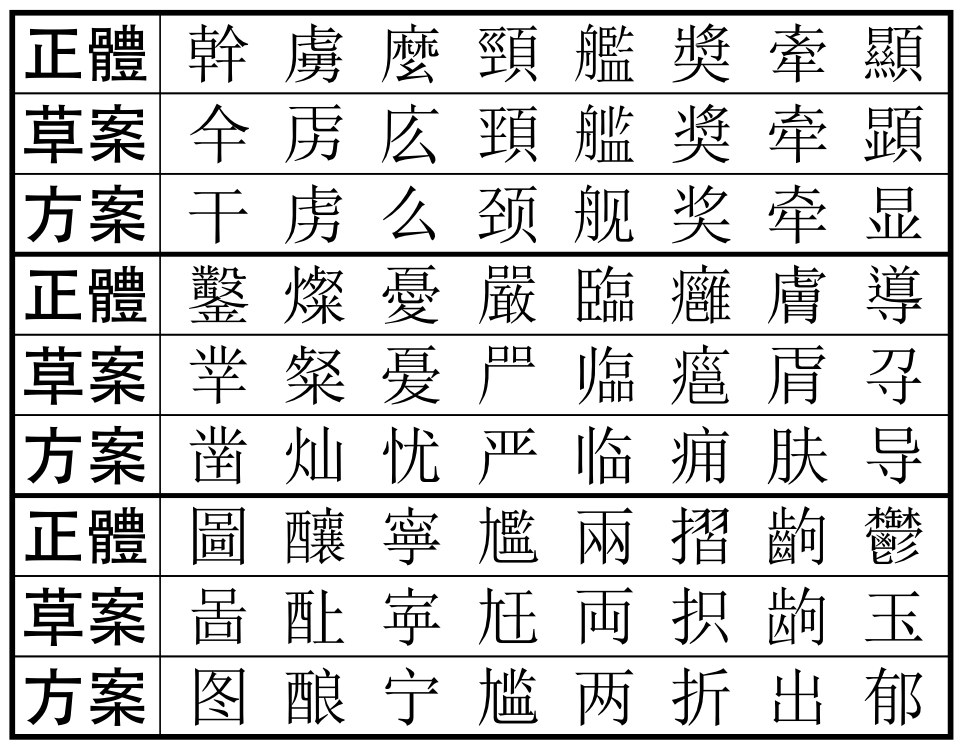 正體 幹 虜 麼 頸 艦 奬 牽 顯
草案 庅 頚 奖 牵 顕
方案 干 虏 么 颈 舰 奖 牵 显
正體 鑿 燦 憂 嚴 臨 癰 膚 導
草案
方案 凿 灿 忧 严 临 痈 肤 导
正體 圖 釀 寧 尷 兩 摺 齣 鬱
草案 両 抧 玉
方案 图 酿 宁 尴 两 折 出 郁